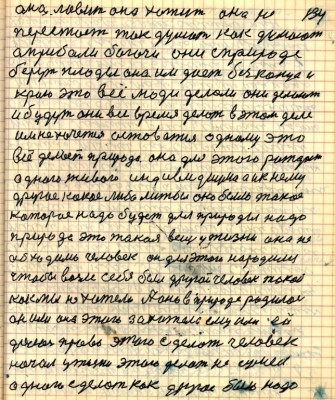 она, ловит она хотит она не 134
перестает так думат как думают
а прибали богачи они с природе
берут плоды она им дает без конца и
краю это всё люди делали они делают
и будут они все время делат в этом деле
им не хочется одному это
всё делает природа она для этого рождает
одного живого индивидиума а к нему
другое какое либо лиш бы оно было такое
которое надо будет для природы надо
природа это такая вещ у жизни она не
обходима человек он для этого народился
чтобы возле себя был другой человек такой
как ты но хотели А оно в природе родилос
он или она этого захотела ему или ей
дается право этого сделат человек
начал у жизни этого делат не сумел
одного сделат как другое был надо